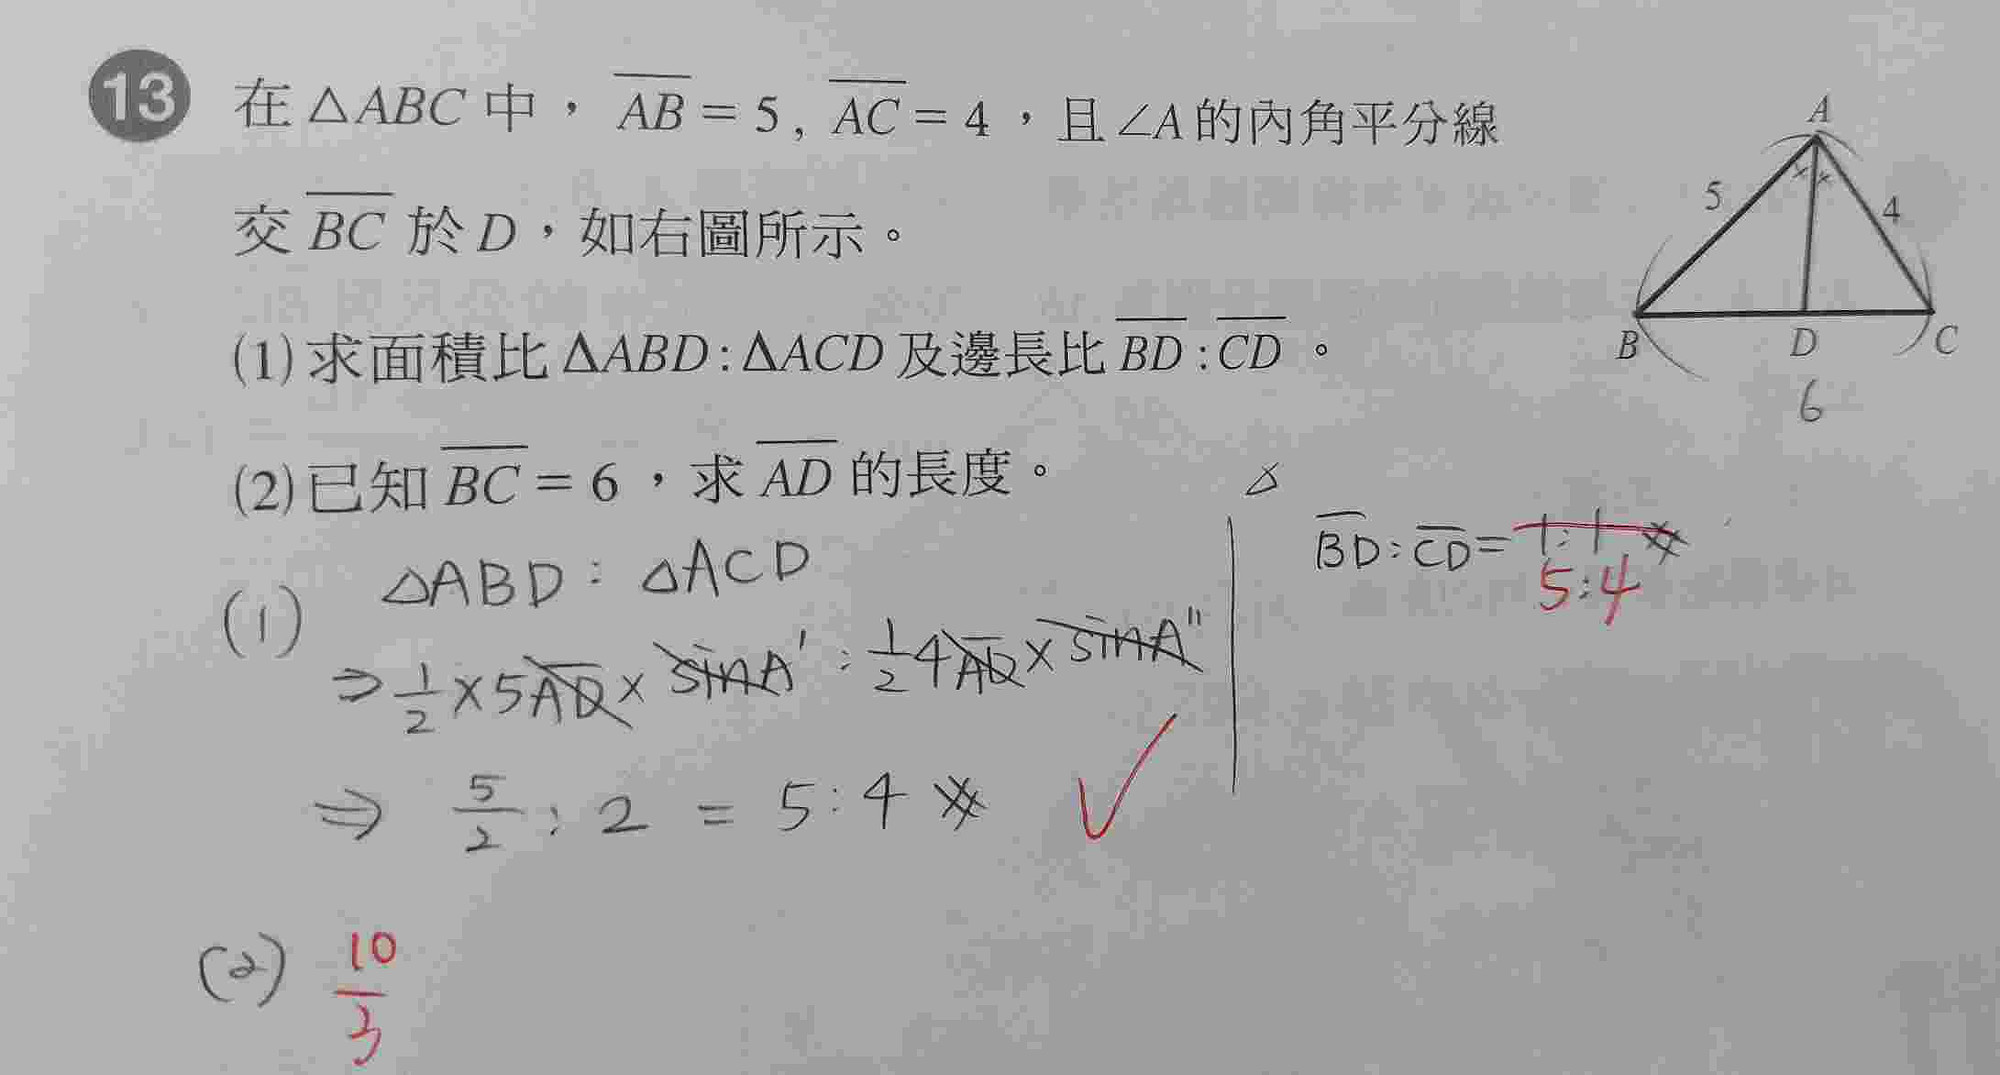 13 在△ABC中，AB = 5, AC = 4，且∠A的內角平分線
交 BC 於D，如右圖所示。
(1)求面積比ΔABD:ΔACD及邊長比BD:CD。
(2)已知BC = 6，求AD的長度。
A
5
4
B
D
C
6
△
(1) △ABD : △ACD
⇒ 1/2 × 5AD × sinA' : 1/2 4AD × sinA"
⇒ 5/2 : 2 = 5:4
BD:CD = 1:1
5:4
(2) 10/3